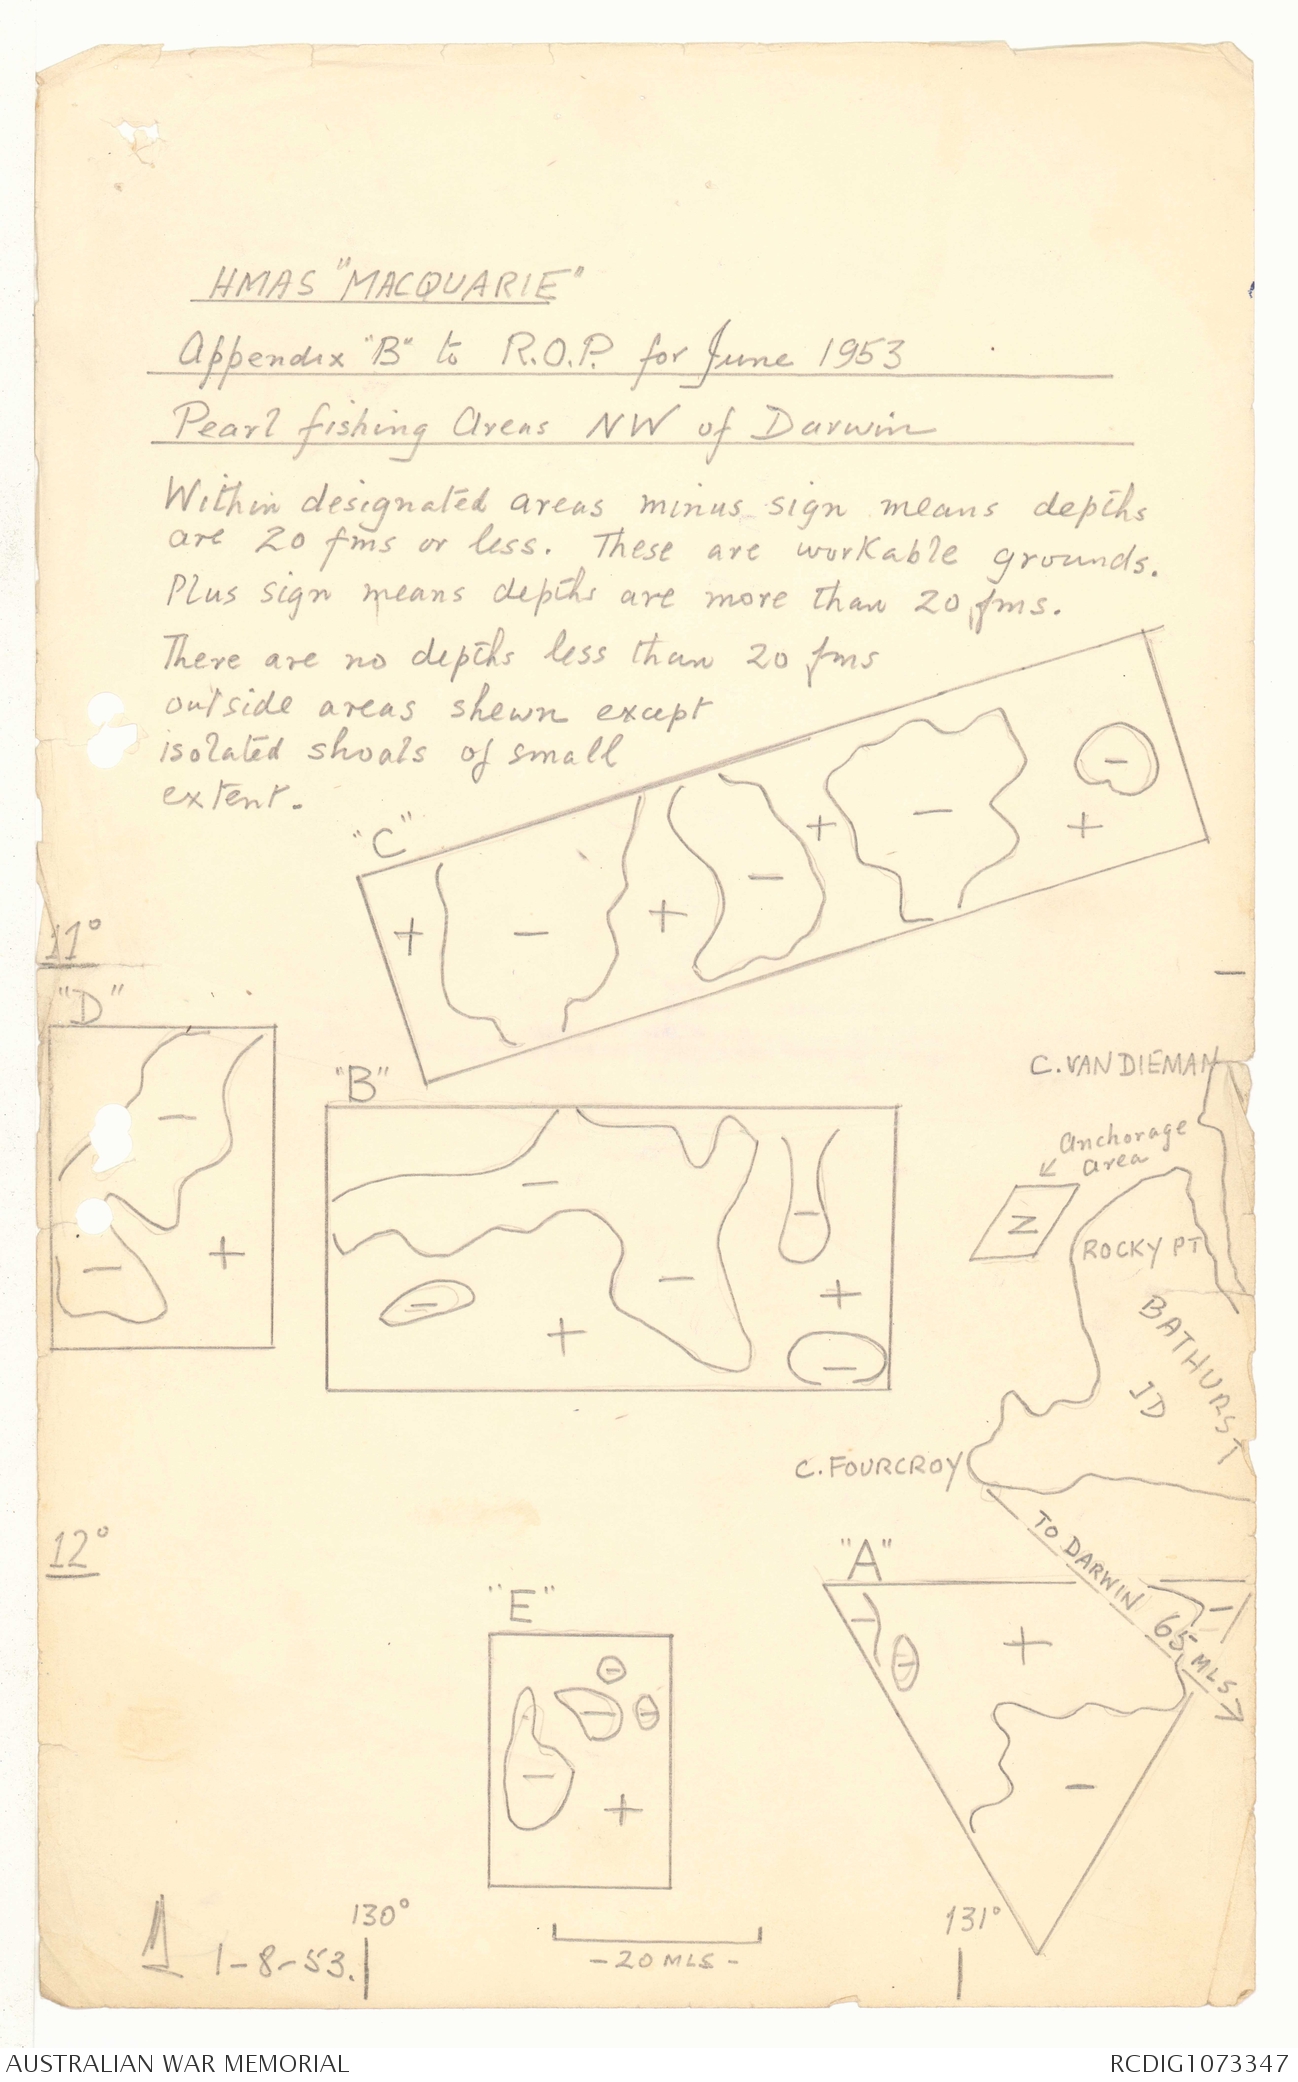 HMAS "MACQUARIE"
Appendix "B" to R.O.P. for June 1953
Pearl fishing Areas NW of Darwin
Within designated areas minus sign means depths
are 20 fms or less. These are workable grounds.
Plus sign means depths are more than 20 fms.
There are no depths less than 20 fms
outside areas shewn except
isolated shoals of small
extent.
"C"
+ - + - + - + -
11°
"D"
-
- +
"B"
-
-
- + - + -
C. VAN DIEMAN
Anchorage
Area
Z
ROCKY PT
BATHURST
ID
C. FOURCROY
TO DARWIN 65 MLS
12°
"A"
- - + -
-
"E"
-
- -
-
+
1-8-53.
130°
-20 MLS-
131°
AUSTRALIAN WAR MEMORIAL
RCDIG1073347